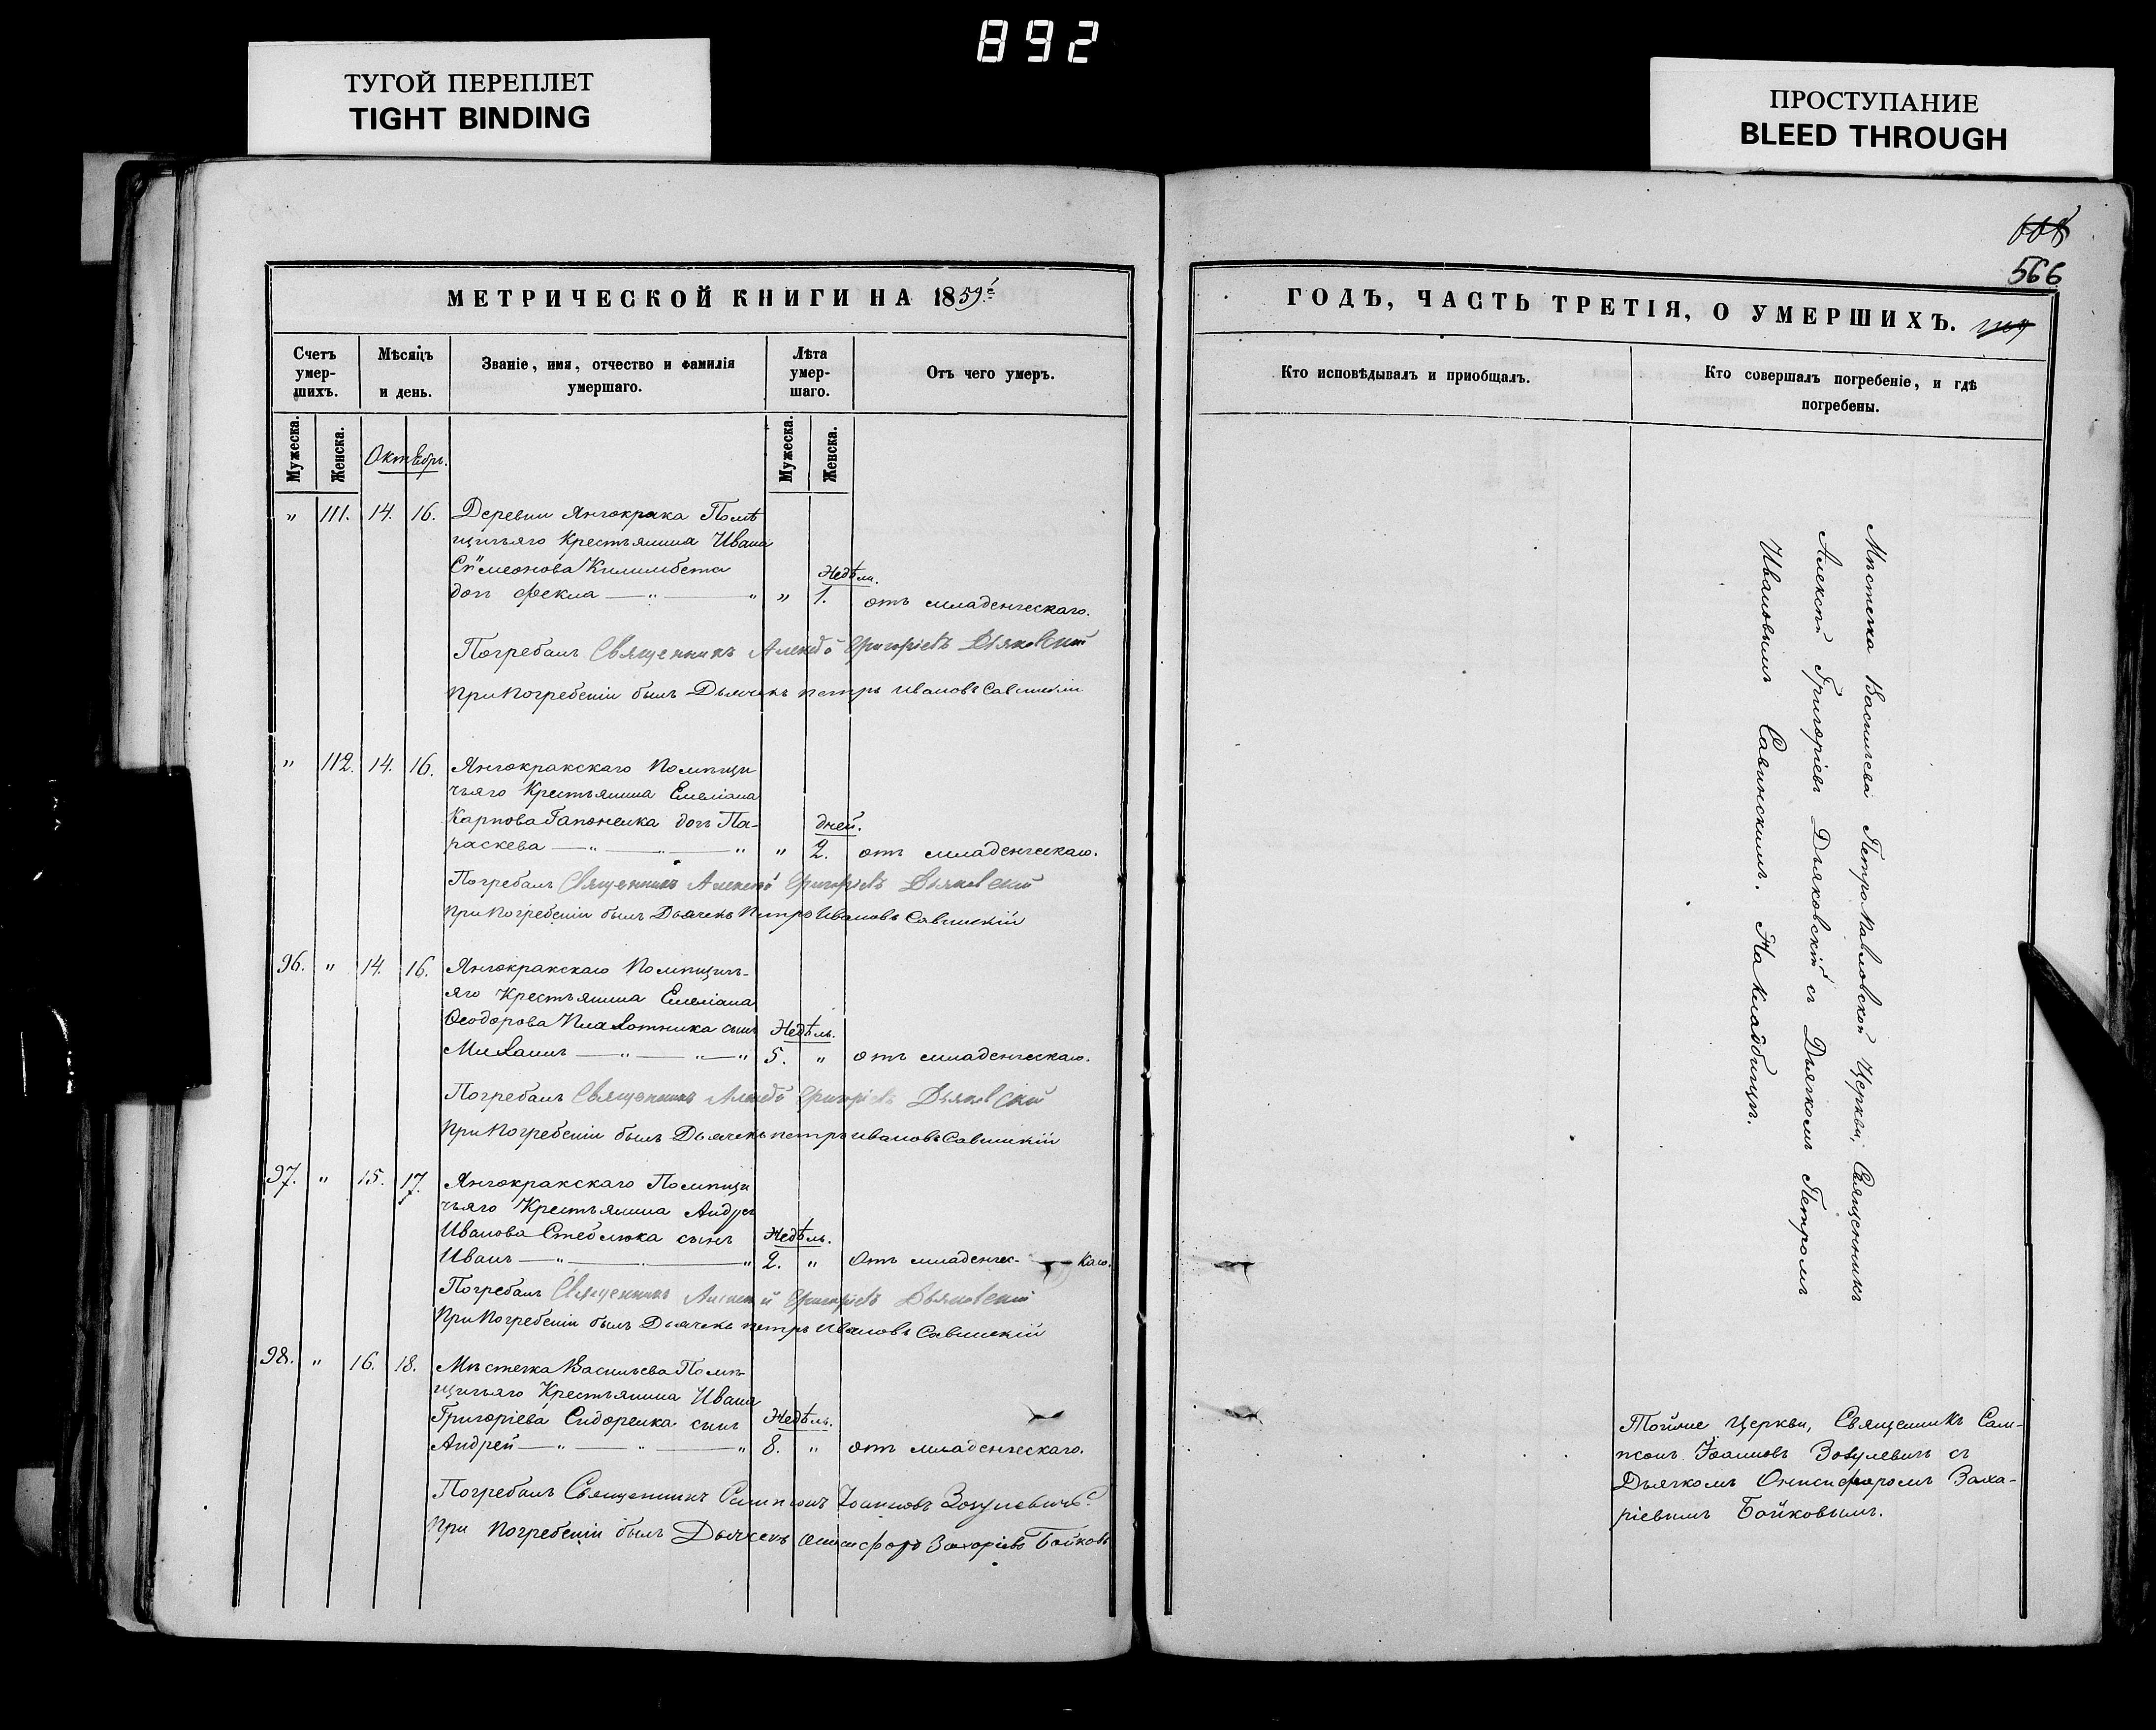 892
ТУГОЙ ПЕРЕПЛЕТ
TIGHT BINDING
ПРОСТУПАНИЕ
BLEED THROUGH
566
МЕТРИЧЕСКОЙ КНИГИ НА 1859й
ГОДЪ, ЧАСТЬ ТРЕТІЯ, О УМЕРШИХЪ.
Счетъ умер-шихъ.
Мѣсяцъ и день.
Званіе, имя, отчество и фамилія умершаго.
Лѣта умер-шаго.
Отъ чего умеръ.
Кто исповѣдывалъ и пріобщалъ.
Кто совершалъ погребеніе, и гдѣ погребены.
Мужеска. Женска. Октябрь. Мужеска. Женска.
" 111. 14. 16. Деревни Янчокрака Помѣ
щичьяго Крестьянина Ивана
Сѵмеонова Килимбета Недѣли.
дочь Фекла — " — " " 1. отъ младенческаго.
Погребалъ Священникъ Алексѣй Григоріевъ Дьяковскій
При погребеніи былъ Дьячекъ Петръ Ивановъ Савинскій
" 112. 14. 16. Янчокракскаго Помѣщи
чьяго Крестьянина Емеліана
Карпова Гапоненка дочь Па- дней.
раскева — " — " " 2. отъ младенческаго.
Погребалъ Священникъ Алексѣй Григоріевъ Дьяковскій
При погребеніи былъ Дьячекъ Петръ Ивановъ Савинскій
96. " 14. 16. Янчокракскаго Помѣщичь-
яго Крестьянина Емеліана
Ѳеодорова Плахотника сынъ Недѣль.
Михаилъ — " — " — " 5. " отъ младенческаго.
Погребалъ Священникъ Алексѣй Григоріевъ Дьяковскій
При погребеніи былъ Дьячекъ Петръ Ивановъ Савинскій
97. " 15. 17. Янчокракскаго Помѣщи
чьяго Крестьянина Андрея
Иванова Стеблюка сынъ Недѣль.
Иванъ — " — " 2. " Отъ младенчес- каго.
Погребалъ Священникъ Алексѣй Григоріевъ Дьяковскій
При погребеніи былъ Дьячекъ Петръ Ивановъ Савинскій
98. " 16. 18. Мѣстечка Васильева Помѣ
щичьяго Крестьянина Ивана
Григоріева Сидоренка сынъ Недѣль.
Андрей — " — " — " 8. " отъ младенческаго.
Погребалъ Священникъ Сампсонъ Іоанновъ Зозулевичъ
При погребеніи былъ Дьячекъ Онисифоръ Захаріевъ Бойковъ
Мѣстечка Васильева Петропавловской Церкви, Священникъ
Алексѣй Григоріевъ Дьяковскій съ Дьячкомъ Петромъ
Ивановымъ Савинскимъ. На кладбищѣ.
Тойже Церкви, Священникъ Сам-
псонъ Іоанновъ Зозулевичъ съ
Дьячкомъ Онисифоромъ Заха-
ріевымъ Бойковымъ.